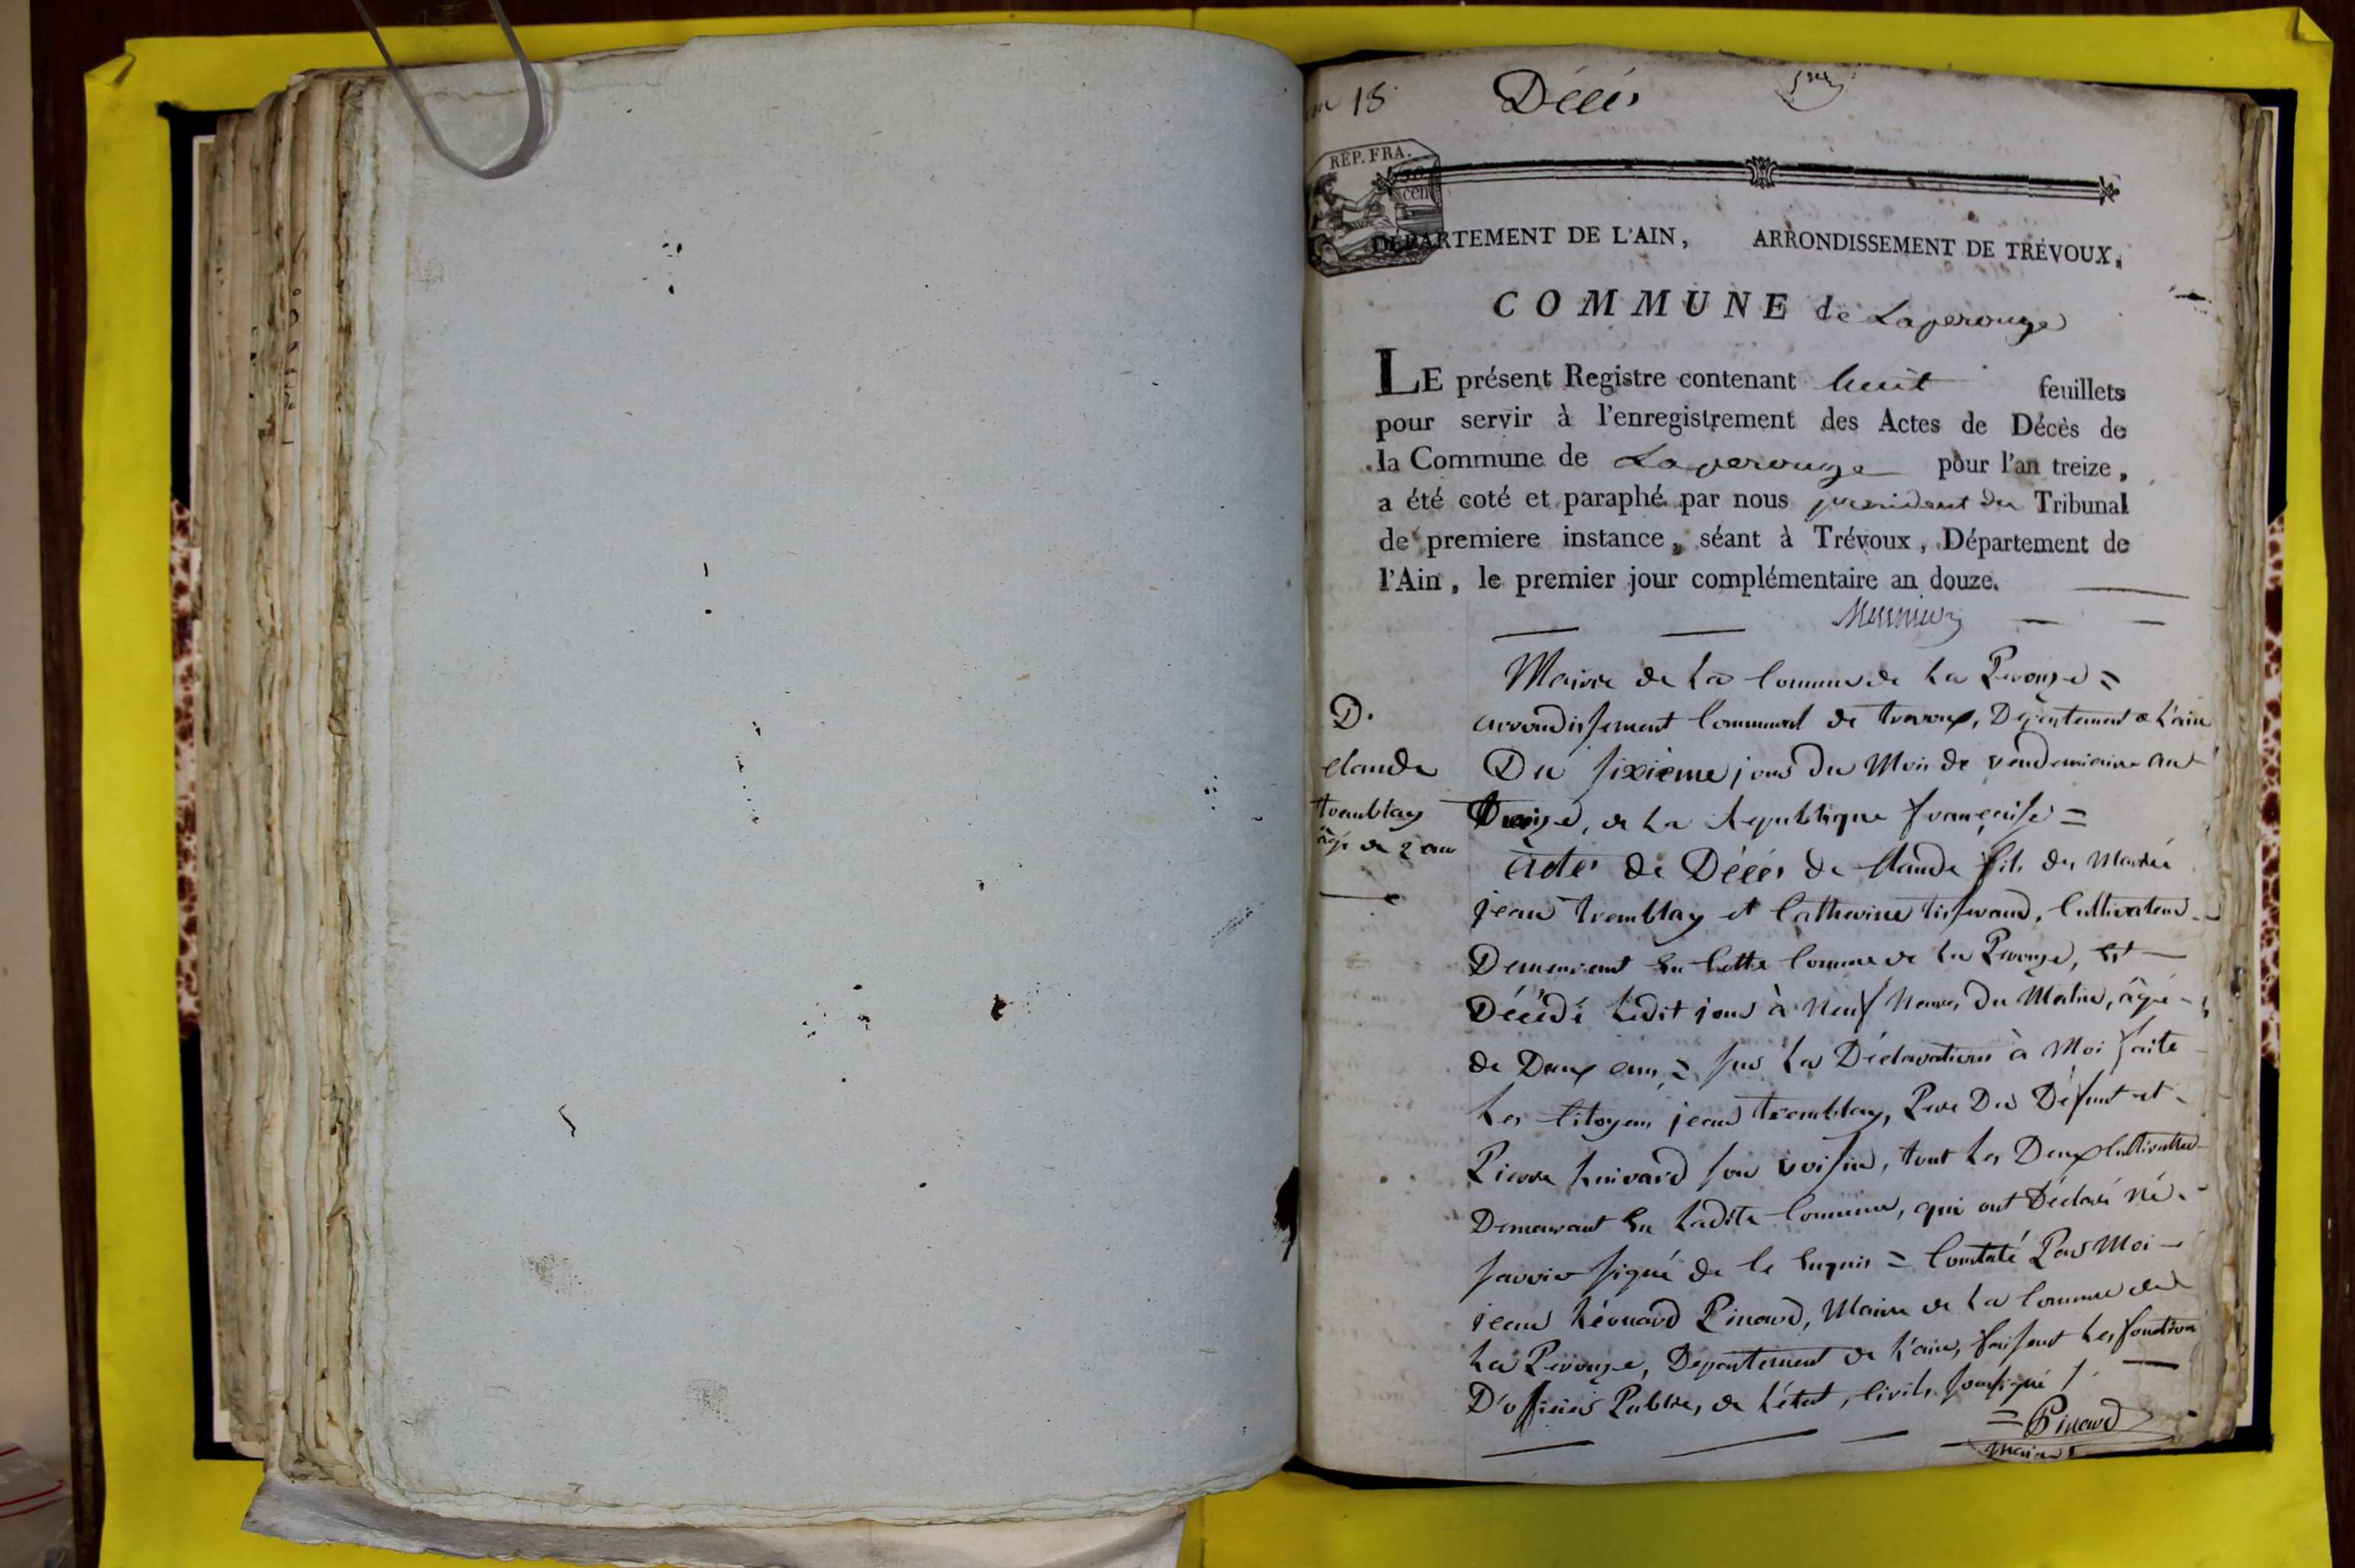 an 13
Décès
RÉP. FRA.
cent
DÉPARTEMENT DE L'AIN, ARRONDISSEMENT DE TRÉVOUX,
COMMUNE de Laperouze
LE présent Registre contenant huit feuillets
pour servir à l'enregistrement des Actes de Décès de
la Commune de Laperouze pour l'an treize,
a été coté et paraphé par nous president du Tribunal
de premiere instance, séant à Trévoux, Département de
l'Ain, le premier jour complémentaire an douze.
Mairie de La Commune de La Perouze =
arrondissement Communal de trevoux, Département de L'ain
Du sixième jour du Mois de vendemiaire an
treize, de La Republique française =
D.
Claude
tremblay
âgé de 2 ans
Acte de Décès de Claude fils des Mariés
jean tremblay et Catherine tisserand, Cultivateurs
Demeurant En Cette Commune de La Perouze, Est
Décédé Ledit jour à Neuf heures du Matin, âgé
de Deux ans = sur La Déclaration à Moi faite
Les Citoyens jean tremblay, Pere Du Défunt et
Pierre son voisin, tout Les Deux Cultivateurs
Demeurant En Ladite Commune, qui ont Déclaré Né
savoir signé de Ce Enquis = Constaté Par Moi
jean Léonard Pinard, Maire de La Commune de
La Perouze, Département de L'ain, faisant Les fonctions
D'officier Public, de L'état, Civil, soussigné
= Pinard
maire